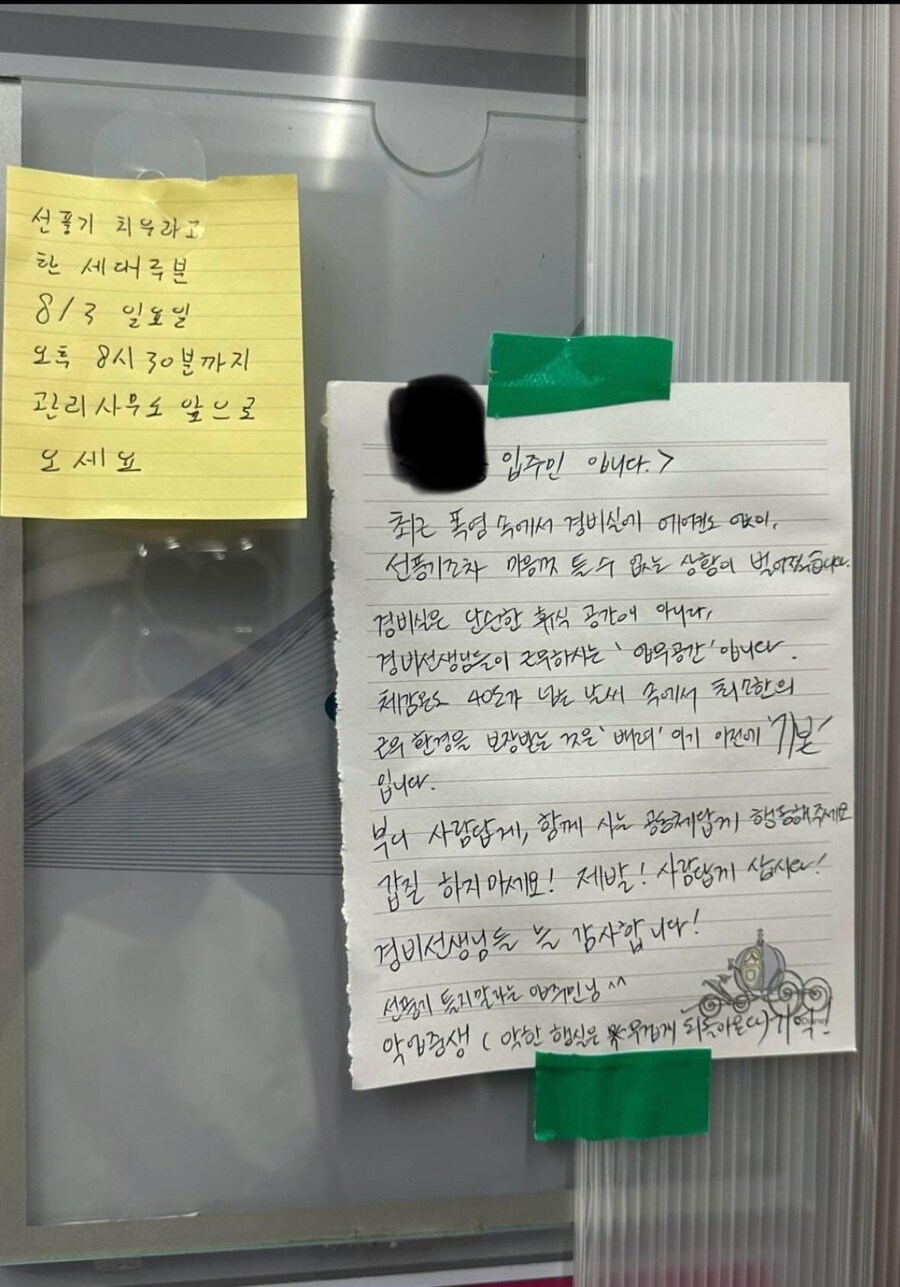 선풍기 치우라고
한 세대주분
8/3 일요일
오후 8시 30분까지
관리사무소 앞으로
오세요
입주민 입니다.>
최근 폭염 속에서 경비실에 에어컨도 없이,
선풍기조차 마음껏 틀 수 없는 상황이 벌어졌습니다.
경비실은 단순한 휴식 공간이 아니라,
경비선생님들이 근무하시는 '업무공간'입니다.
체감온도 40도가 넘는 날씨 속에서 최소한의
근무환경을 보장받는 것은 '배려'이기 이전에 '기본'
입니다.
부디 사람답게, 함께 사는 공동체답게 행동해주세요
갑질 하지마세요! 제발! 사람답게 삽시다!
경비선생님들 늘 감사합니다!
선풍기 틀지말라는 입주민님 ^^
악업중생 (악한 행실은 무겁게 되돌아온다) 기억!
Disney